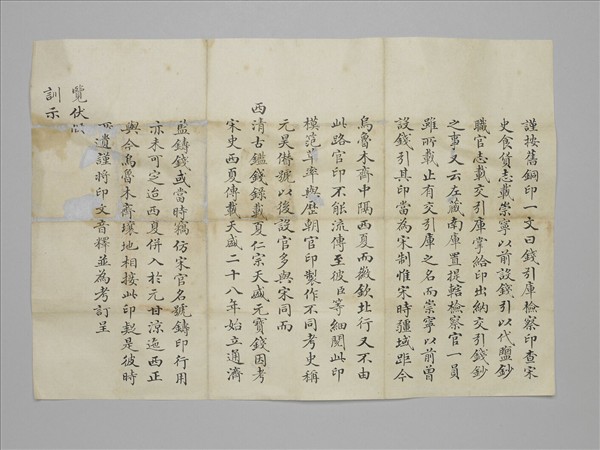 謹按舊銅印一文曰錢引庫檢察印查宋
史食貨志載崇寧以前設錢引以代鹽鈔
職官志載交引庫掌給印出納交引錢鈔
之事又云左藏南庫置提轄檢察官一員
雖所載止有交引庫之名而崇寧以前曾
設錢引其印當為宋制惟宋時疆域距今
烏魯木齊中隔西夏而徽欽北行又不由
此路官印不能流傳至彼臣等細閱此印
模范草率與歷朝官印製作不同考史稱
元昊僣號以後設官多與宋同而
西清古鑑錢錄載夏仁宗天盛元寶錢因考
宋史西夏傳載天盛二十八年始立通濟
監鑄錢或當時竊仿宋官名號鑄印行用
亦未可定迨西夏併入於元甘涼迤西正
與今烏魯木齊壤地相接此印疑是彼時
遺謹將印文音釋並為考訂呈
覽伏
訓示